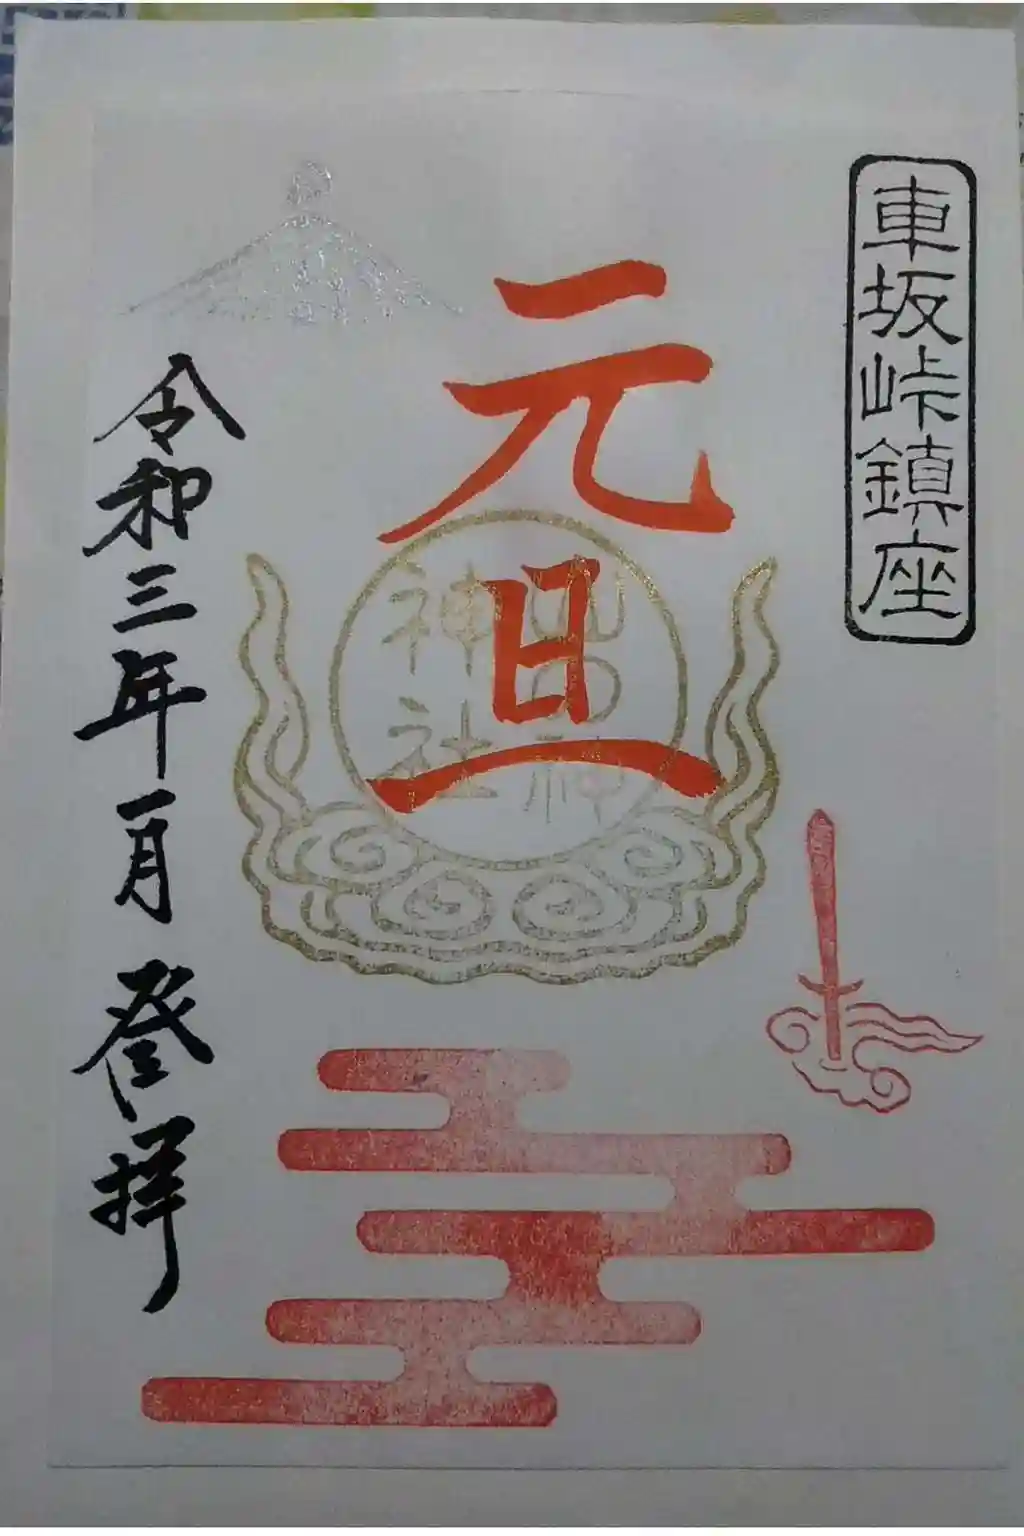 車坂峠鎮座
元旦
山の神
神社
令和三年一月登拝